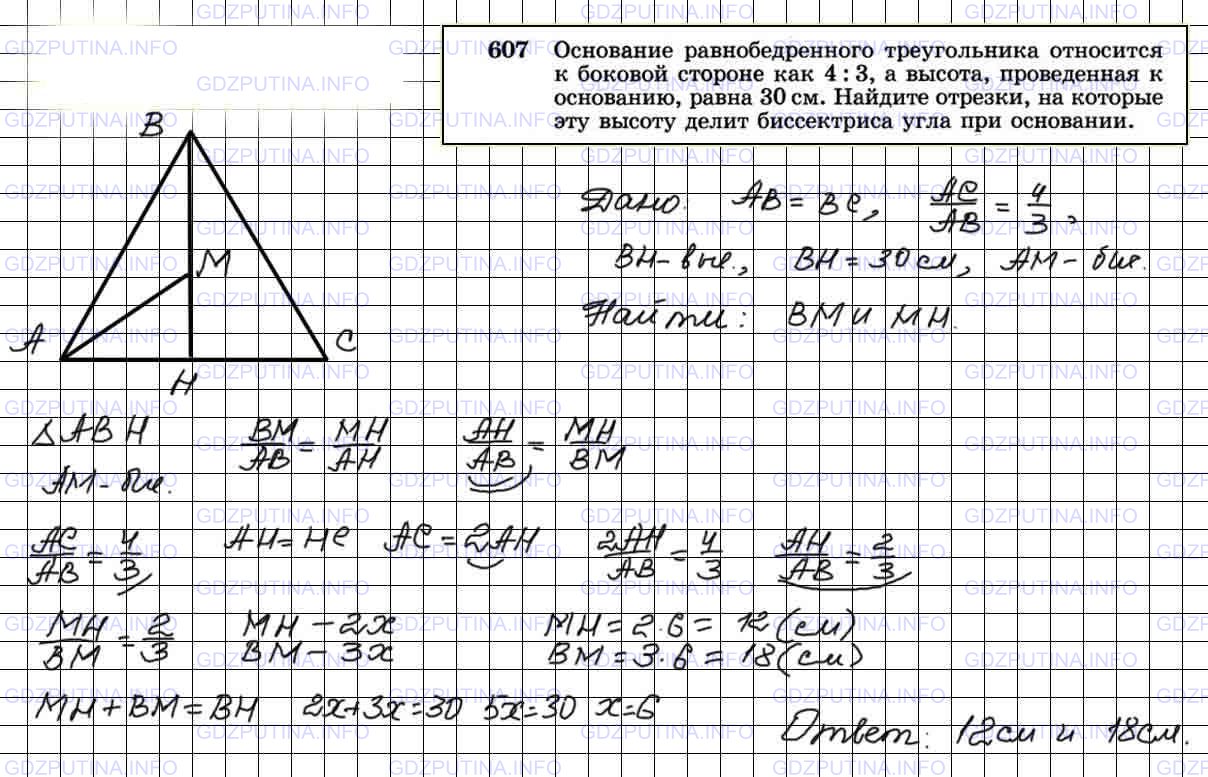 607 Основание равнобедренного треугольника относится
к боковой стороне как 4 : 3, а высота, проведенная к
основанию, равна 30 см. Найдите отрезки, на которые
эту высоту делит биссектриса угла при основании.
B
M
A
C
H
Дано: AB = BC, AC/AB = 4/3,
BH – выс., BH = 30 см, AM – бис.
Найти: BM и MH.
△ABH BM/AB = MH/AH AH/AB = MH/BM
AM – бис.
AC/AB = 4/3 AH = HC AC = 2AH 2AH/AB = 4/3 AH/AB = 2/3
MH/BM = 2/3 MH – 2x MH = 2·6 = 12 (см)
BM – 3x BM = 3·6 = 18 (см)
MH + BM = BH 2x+3x=30 5x=30 x=6
Ответ: 12см и 18см.
GDZPUTINA.INFO